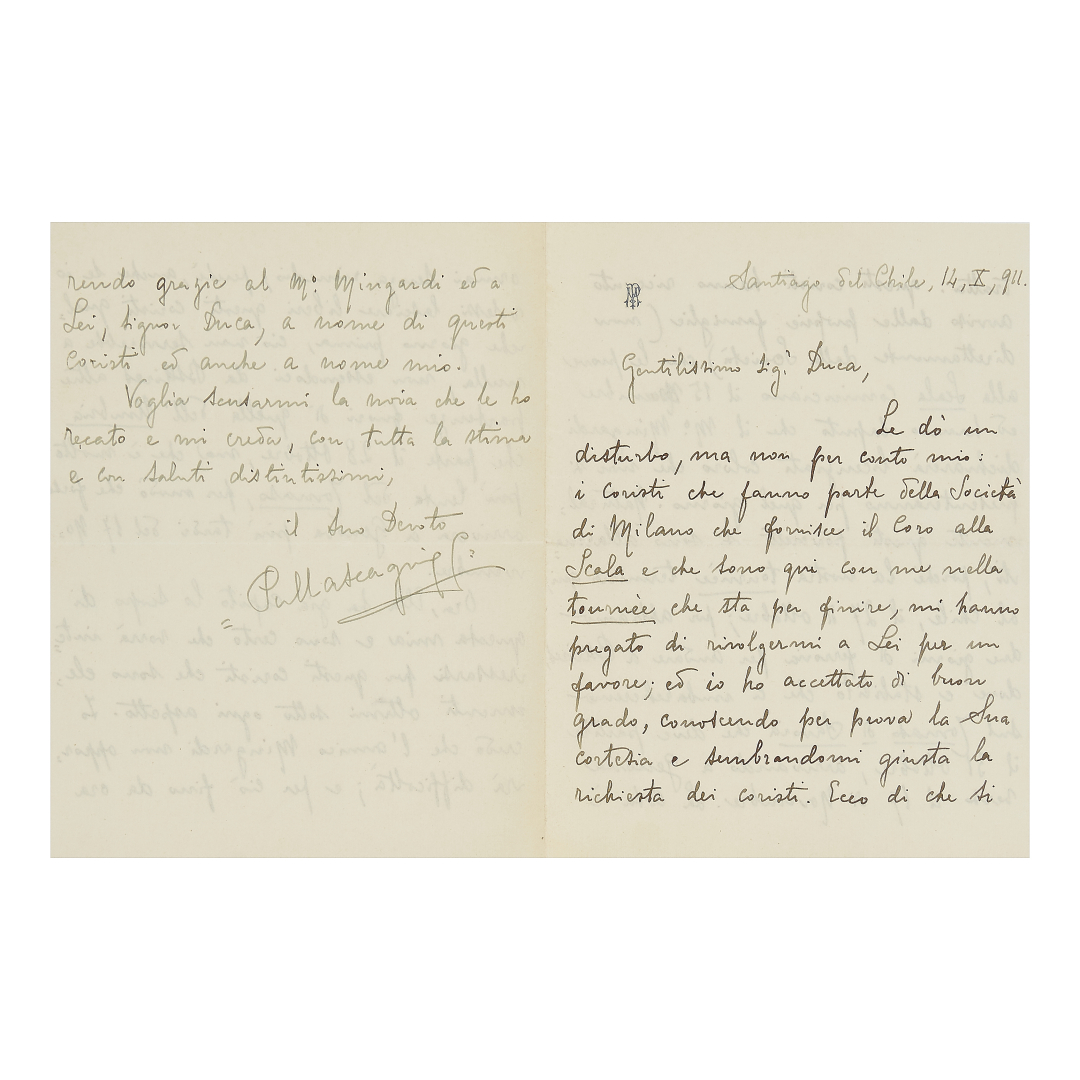 Santiago del Chile, 14, X, 911.
Gentilissimo Sigʳ Duca,
Le dò un
disturbo, ma non per conto mio:
i coristi che fanno parte della Società
di Milano che fornisce il Coro alla
Scala e che sono qui con me nella
tournèe che sta per finire, mi hanno
pregato di rivolgermi a Lei per un
favore; ed io ho accettato di buon
grado, conoscendo per prova la Sua
cortesia e sembrandomi giusta la
richiesta dei coristi. Ecco di che si
rendo grazie al Mº Mingardi ed a
Lei, signor Duca, a nome di questi
coristi ed anche a nome mio.
Voglia scusarmi la noia che le ho
recato e mi creda, con tutta la stima
e con saluti distintissimi,
il Suo Devoto
PMascagni